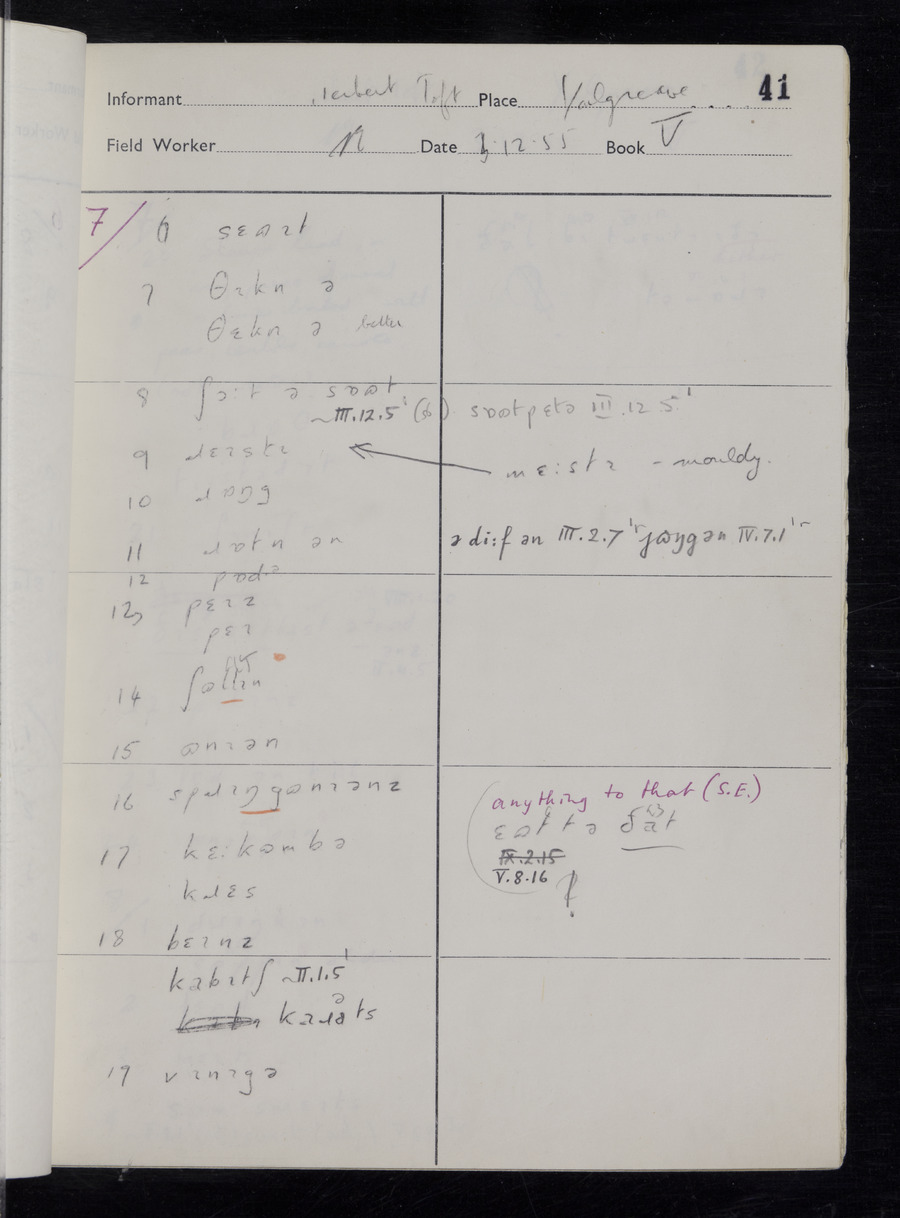 41
Informant Herbert Toft Place Youlgreave
Field Worker Date 3.12.55 Book V
7/ 6 sɛɷɪt
7 θɪkn ə
θɛkn ə better
8 ʃɔ:t ə sɒɷt
~III.12.5 (b) sɒɷtpɛtə III.12.5
9 ɹɛɪstɪ
mɛ:stɪ - mouldy.
10 ɹɒŋg
11 ɹɒtn ən ədi:fən III.2.7 jɷŋgən IV.7.1
12
13 pɛɪz
pɛɪ
14
15 ɷnɪən
16 spɹɪŋgɷnɪənz
anything to that (S.E.)
ɛɷt tə ðat
IX.2.15
V.8.16
17 kɛ:kɷmbə
kɹɛs
18 bɛɪnz
kabɪtʃ ~II.1.5
kaɹəts
19 vɪnɪgə